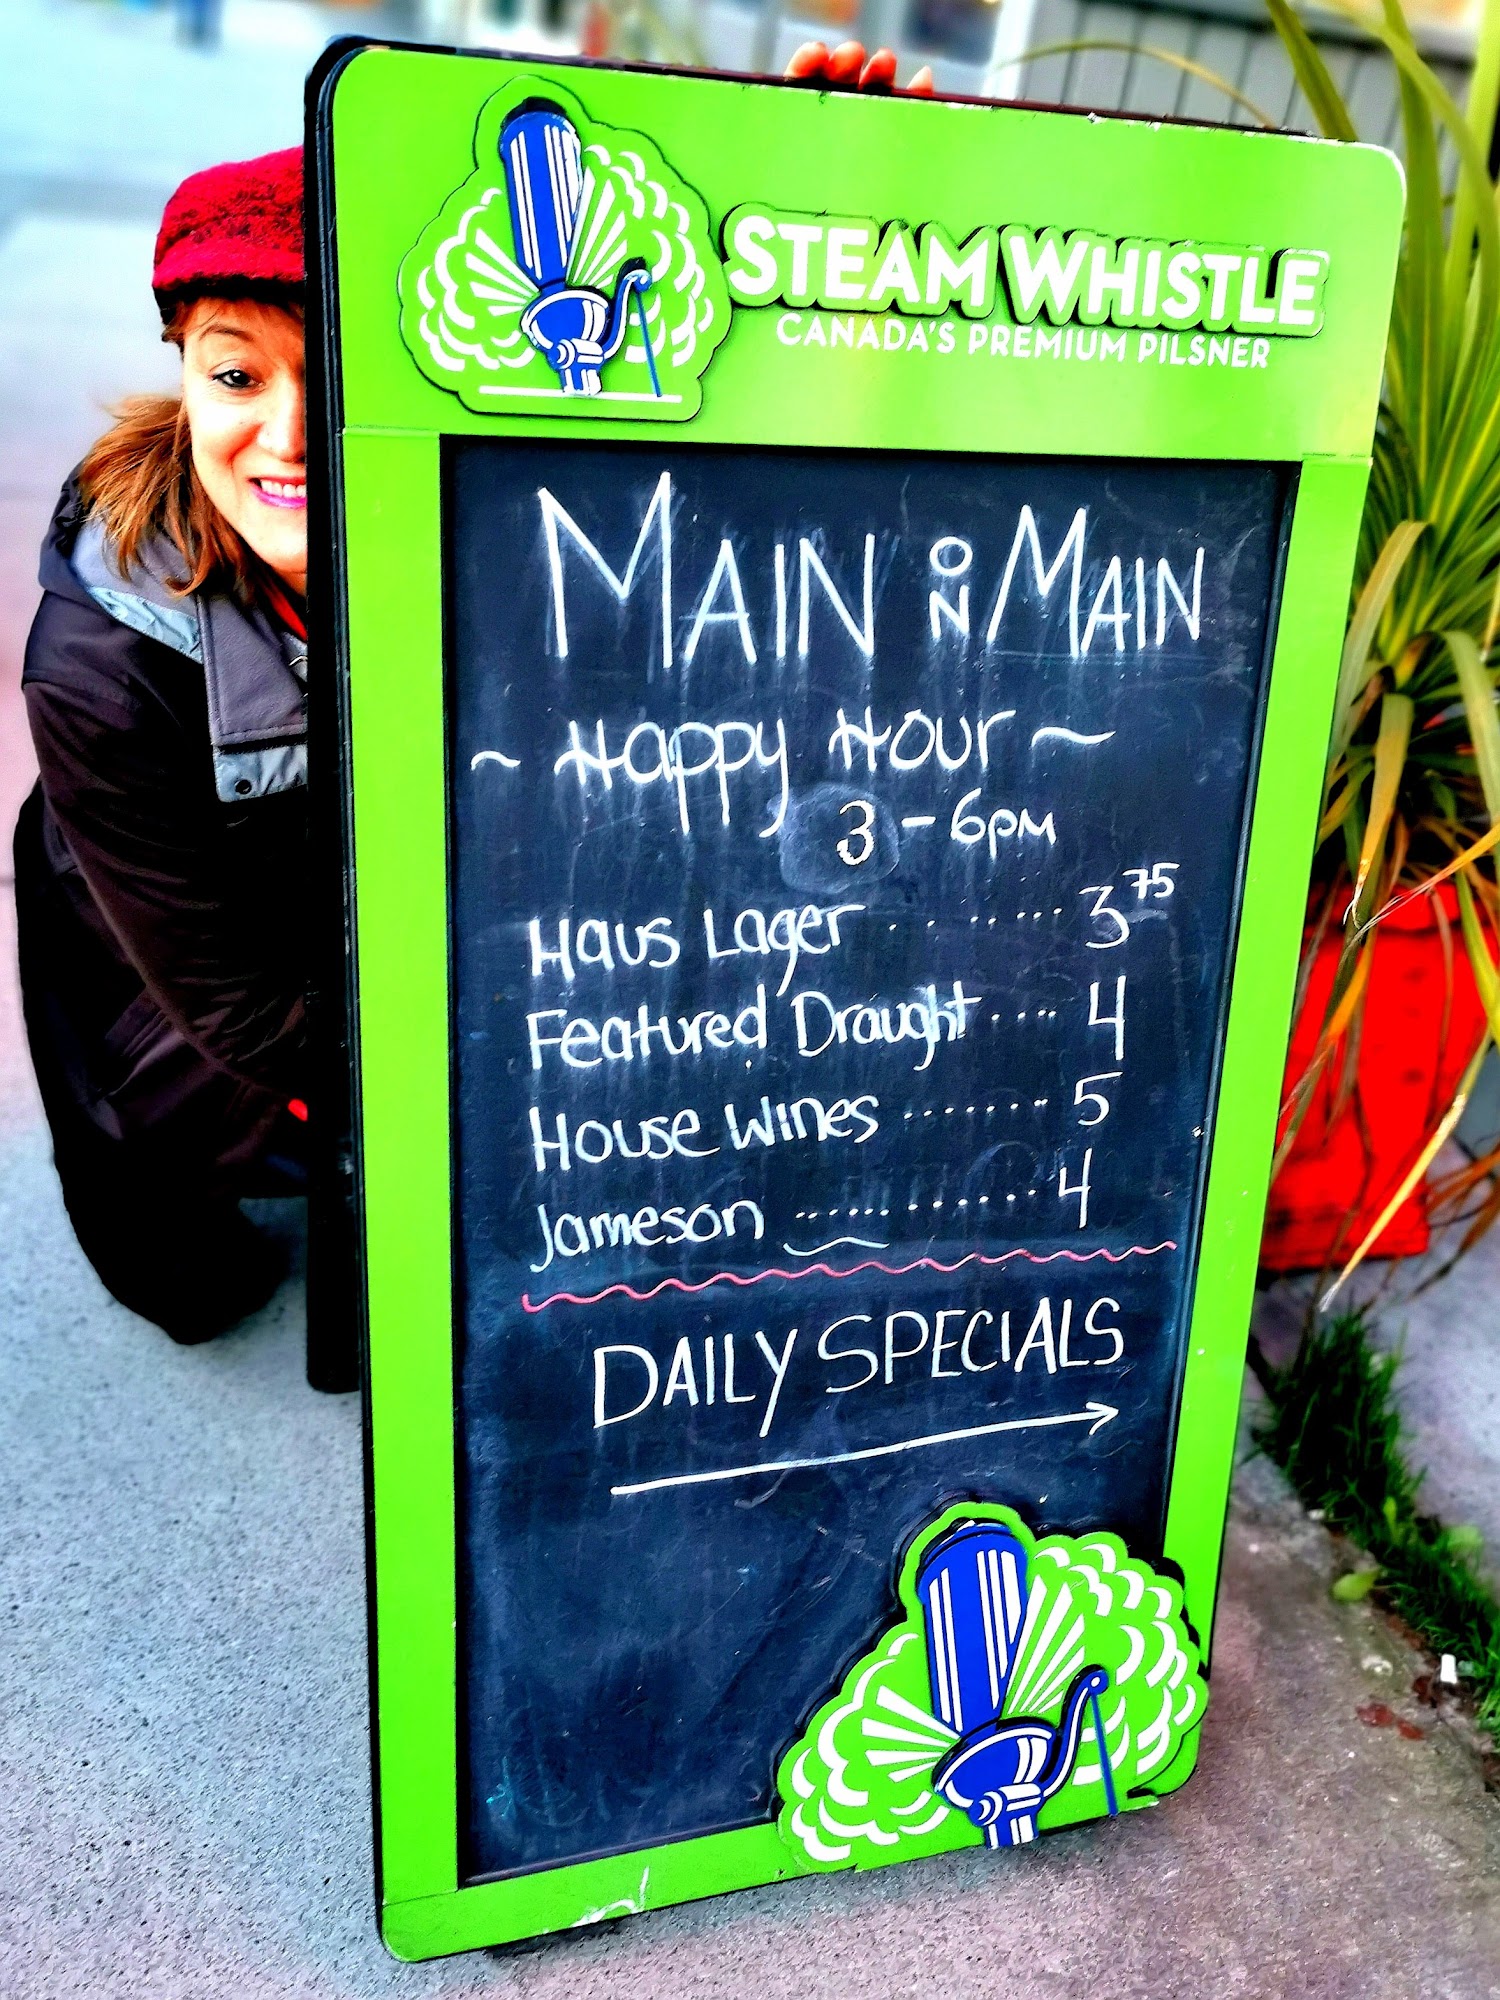 STEAM WHISTLE
CANADA'S PREMIUM PILSNER
MAIN ON MAIN
~ Happy Hour ~
3 - 6pm
Haus Lager ........ 3 75
Featured Draught .... 4
House Wines ....... 5
Jameson ............. 4
DAILY SPECIALS